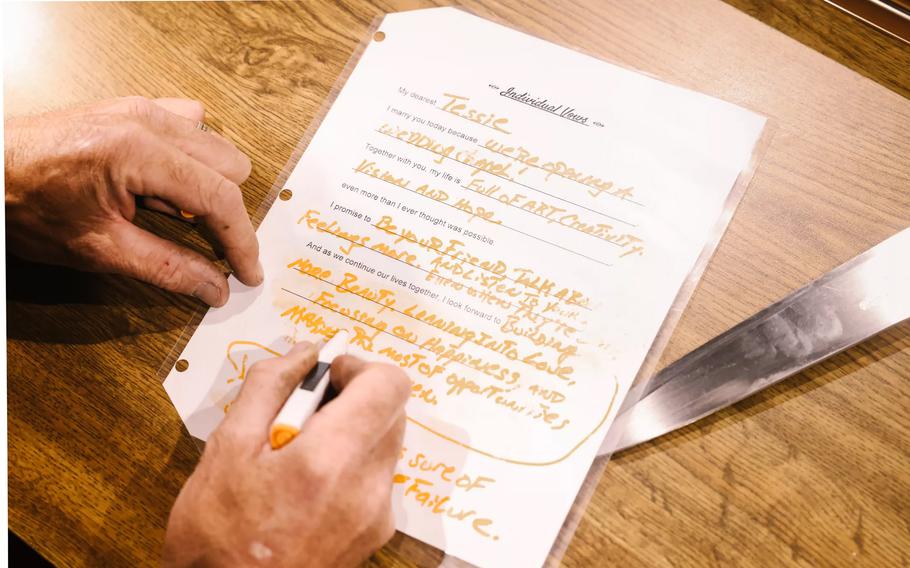 Individual Vows
My dearest Tessie
I marry you today because we're opening A
wedding chapel
Together with you, my life is Full of ART, Creativity,
Vision AND Hope
even more than I ever thought was possible.
I promise to Be your Friend, TALK About
Feelings more, AND Listen
And as we continue our lives together, I look forward to Building
more Beauty, Leaning into Love,
Focused on Happiness, AND
Making the most of opportunities
sure of
Failure.